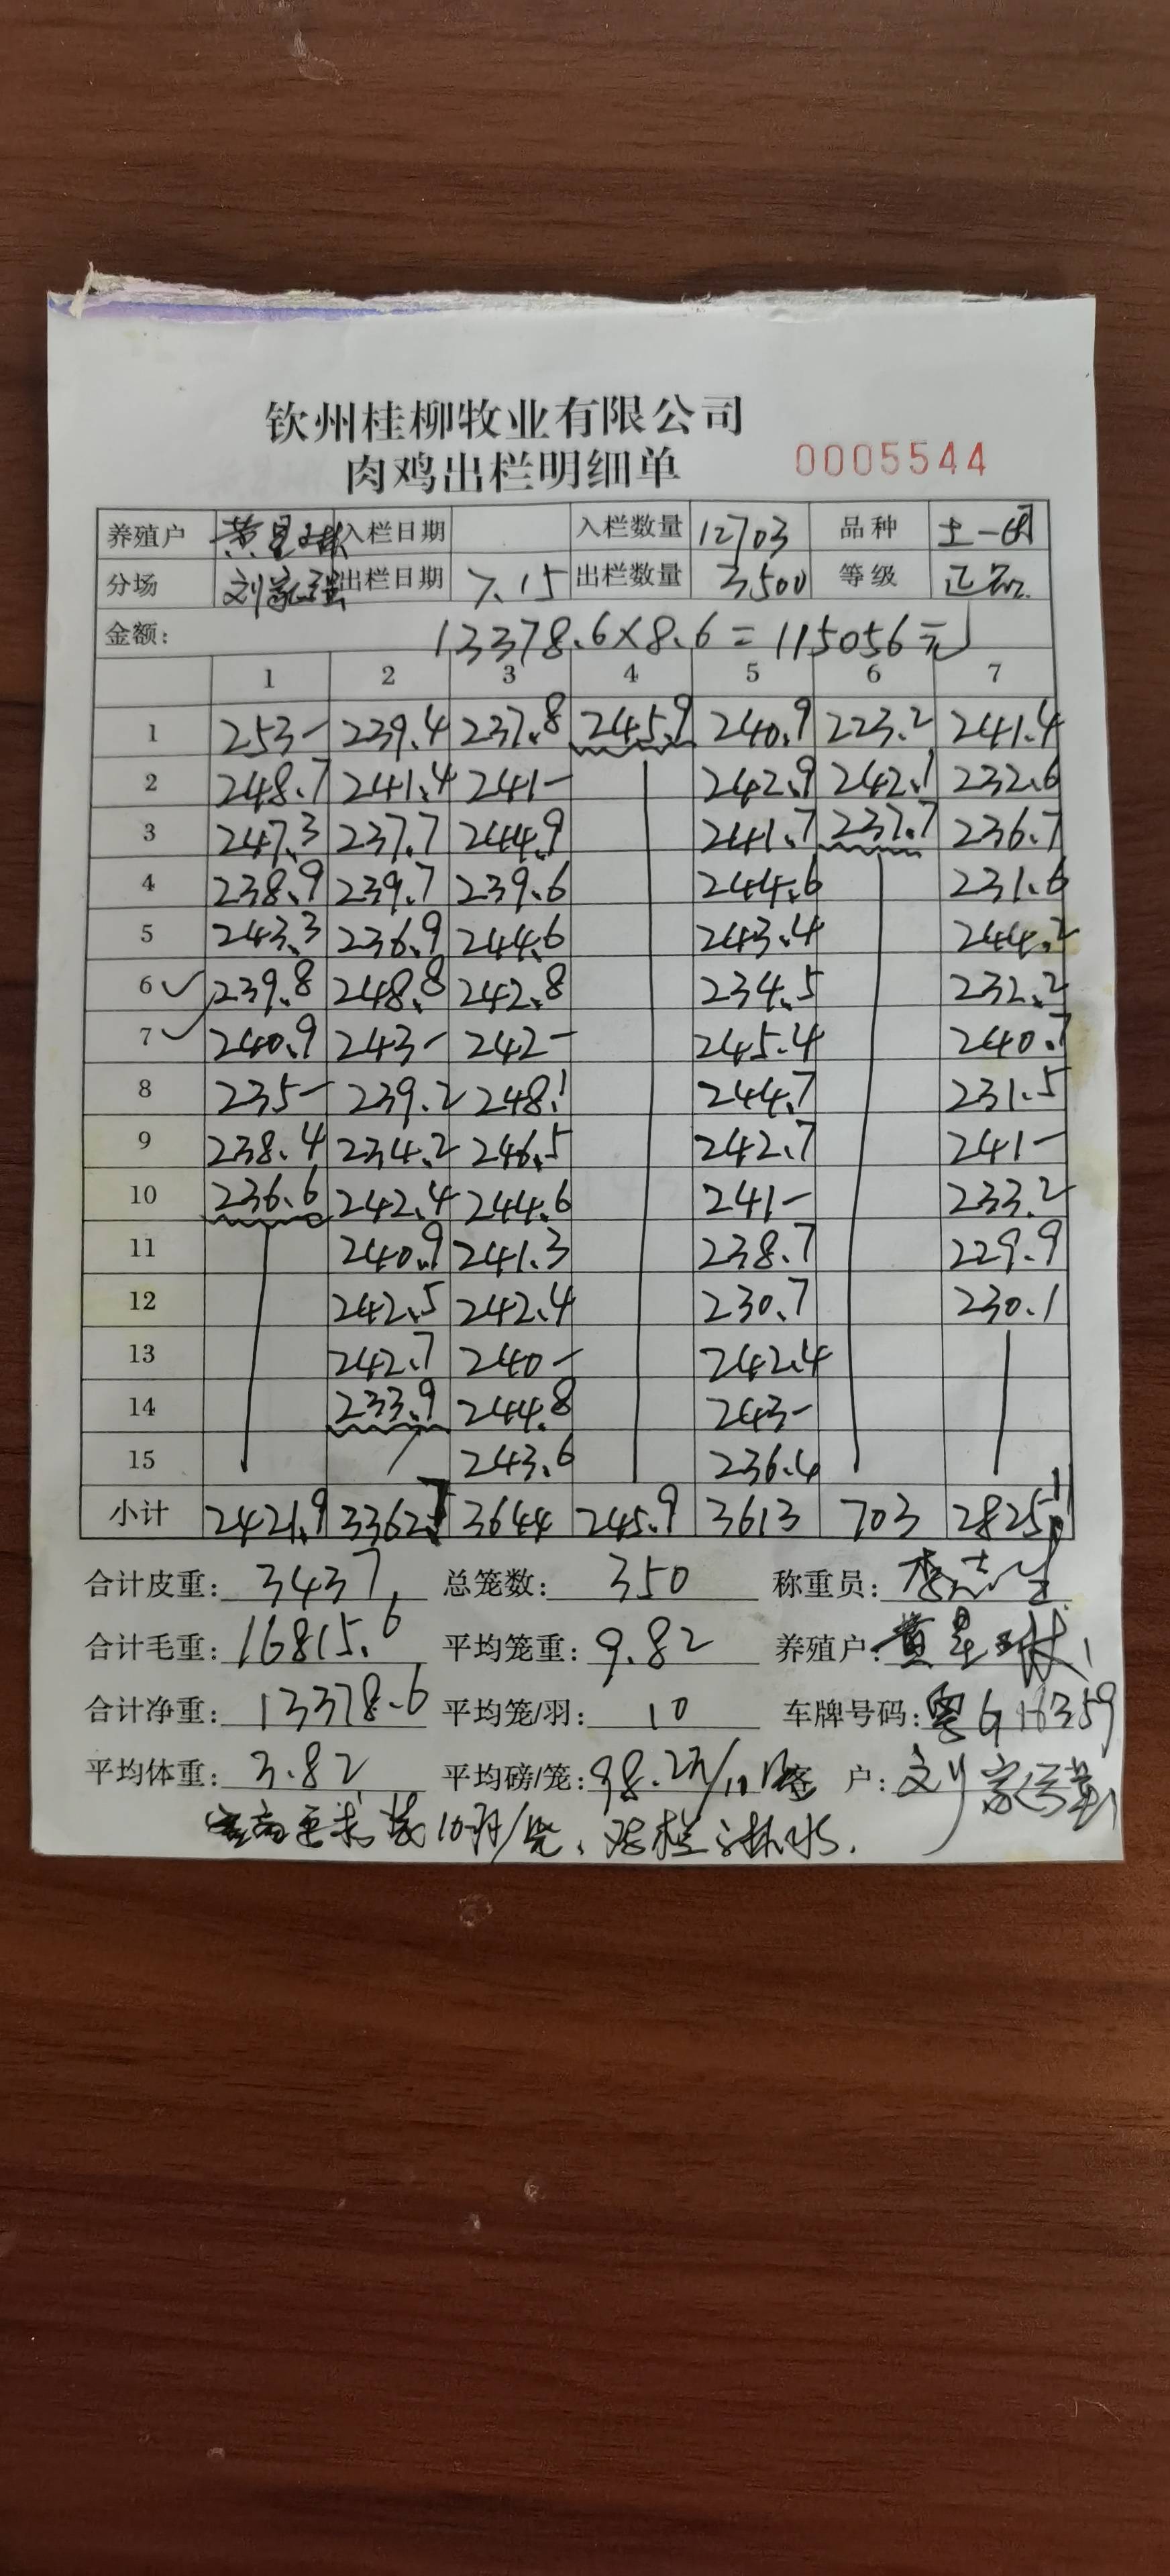 钦州桂柳牧业有限公司
肉鸡出栏明细单 0005544
养殖户 黄星 入栏日期 入栏数量 12703 品种 土一
分场 刘家强 出栏日期 7.15 出栏数量 3500 等级 正品
金额: 13378.6×8.6=115056元
1 2 3 4 5 6 7
1 253- 239.4 237.8 245.9 240.9 223.2 241.4
2 248.7 241.4 241- 242.9 242.1 232.6
3 247.3 237.7 244.9 241.7 237.7 236.7
4 238.9 239.7 239.6 244.6 231.6
5 243.3 236.9 244.6 243.4 244.2
6 239.8 248.8 242.8 234.5 232.2
7 240.9 243- 242- 245.4 240.7
8 235- 239.2 248.1 244.7 231.5
9 238.4 234.2 246.5 242.7 241-
10 236.6 242.4 244.6 241- 233.2
11 240.9 241.3 238.7 229.9
12 242.5 242.4 230.7 230.1
13 242.7 240- 242.4
14 233.9 244.8 243-
15 243.6 236.4
小计 2421.9 3362.7 3644 245.9 3613 703 2825.1
合计皮重: 3437 总笼数: 350 称重员: 李志
合计毛重: 16815.6 平均笼重: 9.82 养殖户: 黄星
合计净重: 13378.6 平均笼/羽: 10 车牌号码: 粤G16359
平均体重: 3.82 平均磅/笼: 98.2 客 户: 刘家
客商要求装10羽/笼,